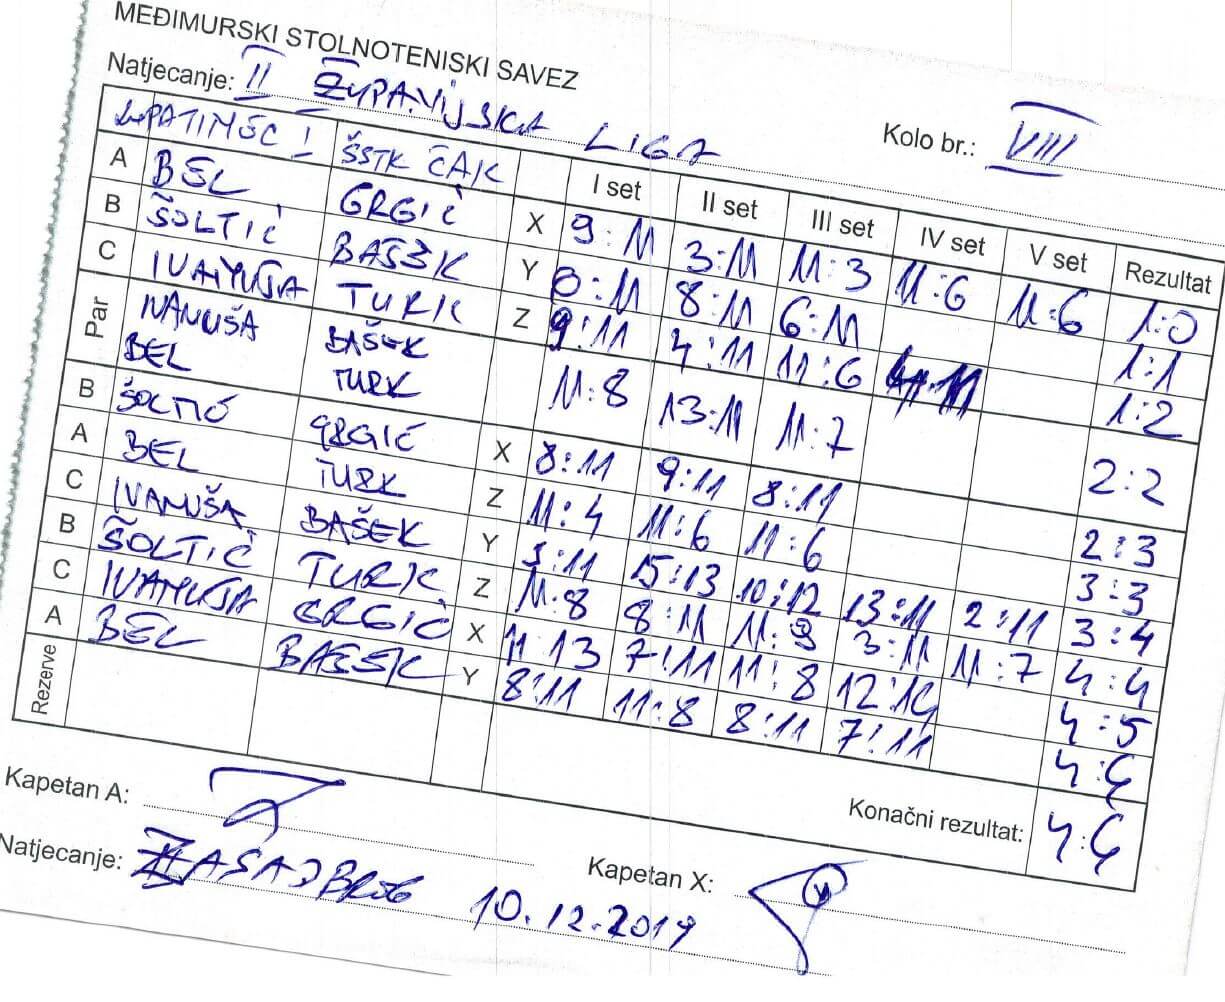 MEĐIMURSKI STOLNOTENISKI SAVEZ
Natjecanje: II ŽUPANIJSKA LIGA
Kolo br.: VIII
LOPATINEC I ŠSTK ČAK I set II set III set IV set V set Rezultat
A BEL GRGIĆ X 9:11 3:11 11:3 11:6 11:6 1:0
B ŠOLTIĆ BAŠEK Y 8:11 8:11 6:11 1:1
C IVANUŠA TURK Z 9:11 4:11 11:6 4:11 1:2
Par IVANUŠA BAŠEK 11:8 13:11 11:7 2:2
BEL TURK
B ŠOLTIĆ GRGIĆ X 8:11 9:11 8:11 2:3
A BEL TURK Z 11:4 11:6 11:6 3:3
C IVANUŠA BAŠEK Y 3:11 15:13 10:12 13:11 2:11 3:4
B ŠOLTIĆ TURK Z 11:8 8:11 11:9 3:11 11:7 4:4
C IVANUŠA GRGIĆ X 11:13 7:11 11:8 12:14 4:5
A BEL BAŠEK Y 8:11 11:8 8:11 7:11 4:6
Rezerve
Konačni rezultat: 4:6
Kapetan A:
Kapetan X:
Natjecanje: ZASADBREG 10.12.2019